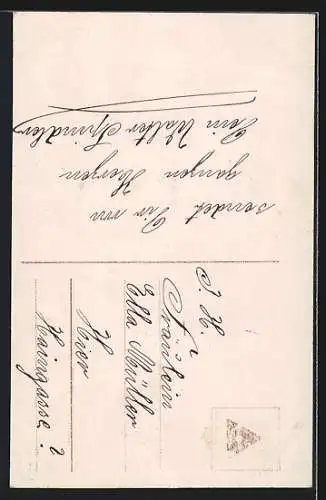 sendet Dir von
ganzen Herzen
Dein Walter Spindler
S. H.
Fräulein
Ella Müller
Hier
Haingasse 2